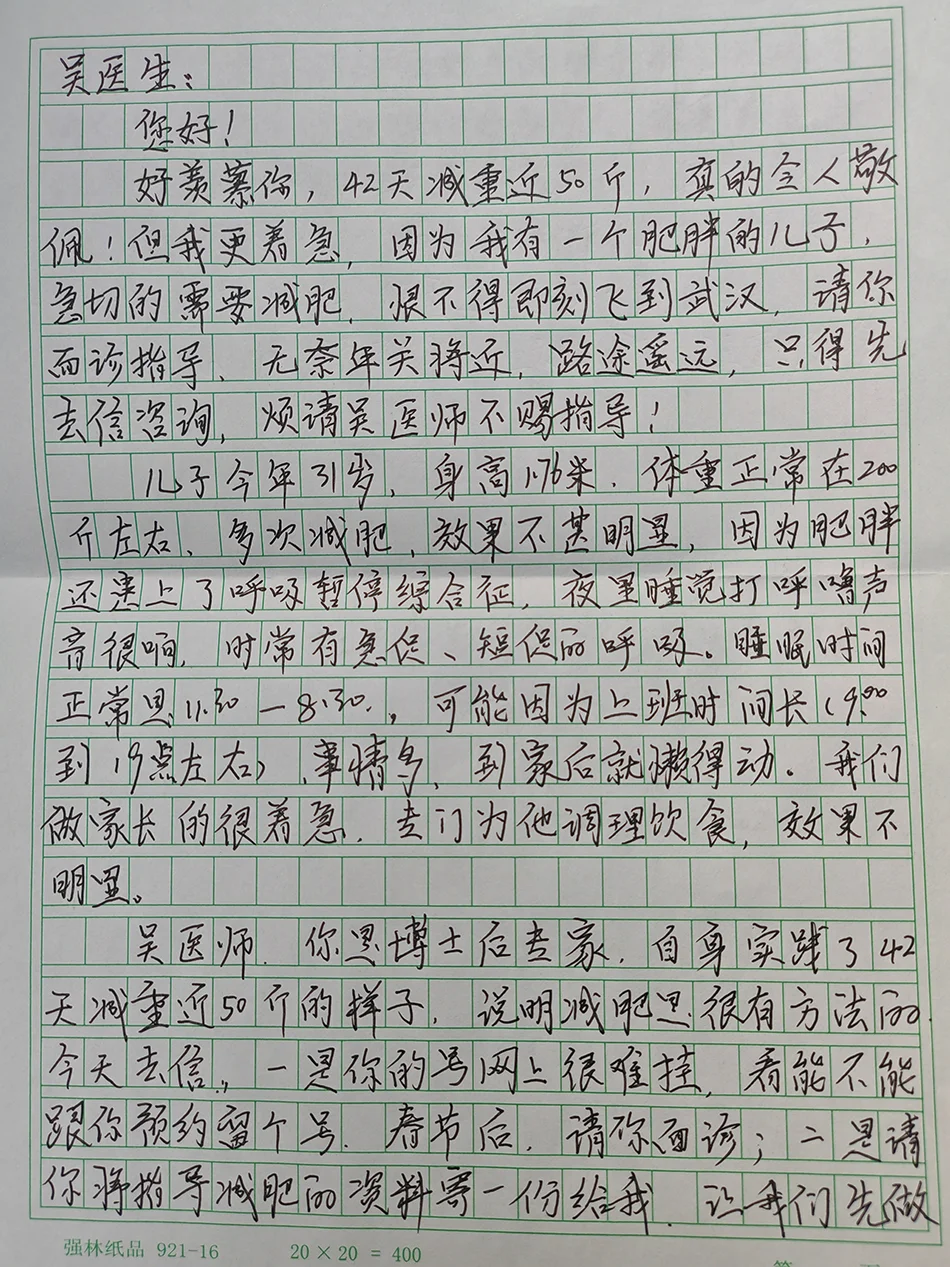 吴医生:
您好!
好羡慕你,42天减重近50斤,真的令人敬
佩!但我更着急,因为我有一个肥胖的儿子,
急切的需要减肥,恨不得即刻飞到武汉,请你
面诊指导,无奈年关将近,路途遥远,只得先
去信咨询,烦请吴医师不赐指导!
儿子今年31岁,身高1.76米,体重正常在200
斤左右、多次减肥,效果不甚明显,因为肥胖
还患上了呼吸暂停综合征,夜里睡觉打呼噜声
音很响,时常有急促、短促的呼吸。睡眠时间
正常是11:30-8:30,可能因为上班时间长(9:00
到19点左右),事情多,到家后就懒得动。我们
做家长的很着急,专门为他调理饮食,效果不
明显。
吴医师,你是博士后专家,自身实践了42
天减重近50斤的样子,说明减肥是很有方法的.
今天去信,一是你的号网上很难挂,看能不能
跟你预约留个号,春节后,请你面诊;二是请
你将指导减肥的资料寄一份给我,让我们先做
强林纸品 921-16 20×20=400